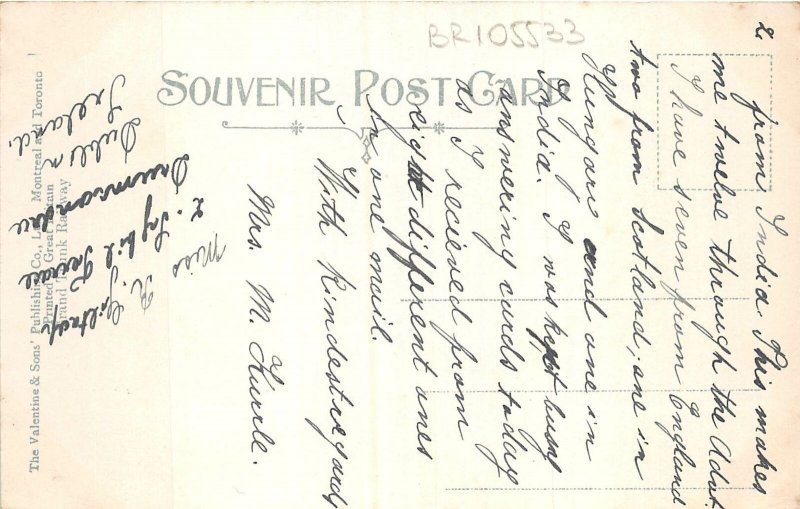 BR105533
SOUVENIR POST CARD
2.
from India. This makes
me twelve through the Advt.
I have seven from England
two from Scotland, one in
Hungary and one in
India. I was kept busy
answering cards today
as I recieved from
eight different ones
in one mail.
With Kindest regards
Mrs. M. Kurrle.
Miss
R. Giltrap
2. Sybil Terrace
Drumcondra
Dublin
Ireland.
The Valentine & Sons' Publishing Co., Ltd., Montreal and Toronto
Printed in Great Britain
Grand Trunk Railway